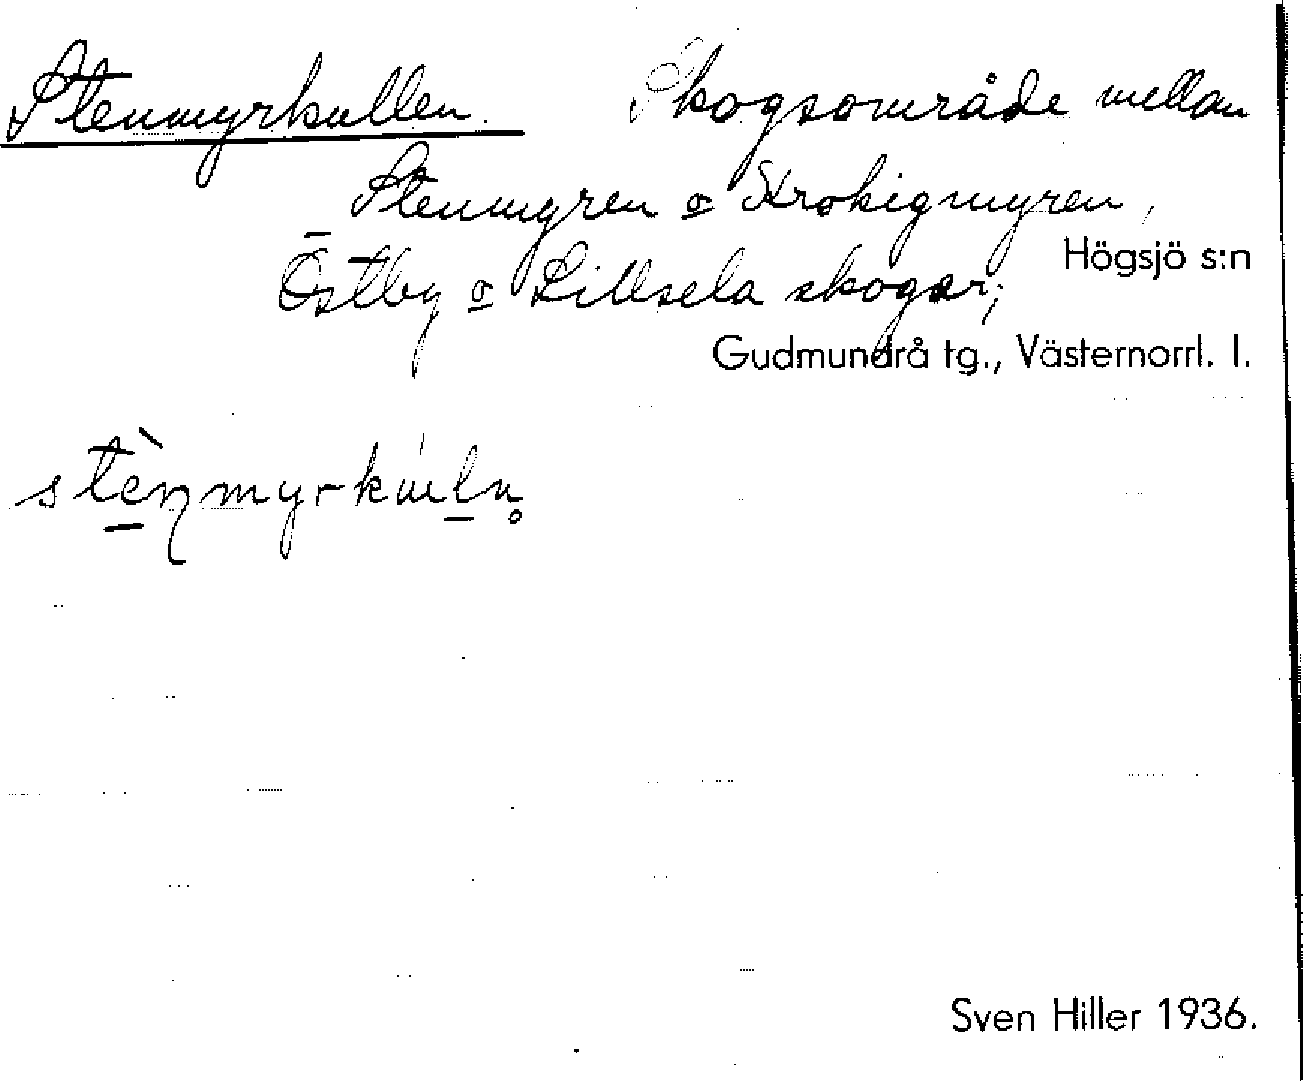 Stenmyrkullen. Skogsområde mellan
Stenmyren o Krokigmyren,
Högsjö s:n
Östby o Lillsela skogar;
Gudmundrå tg., Västernorrl. l.
stènmyrkuln̥
Sven Hiller 1936.